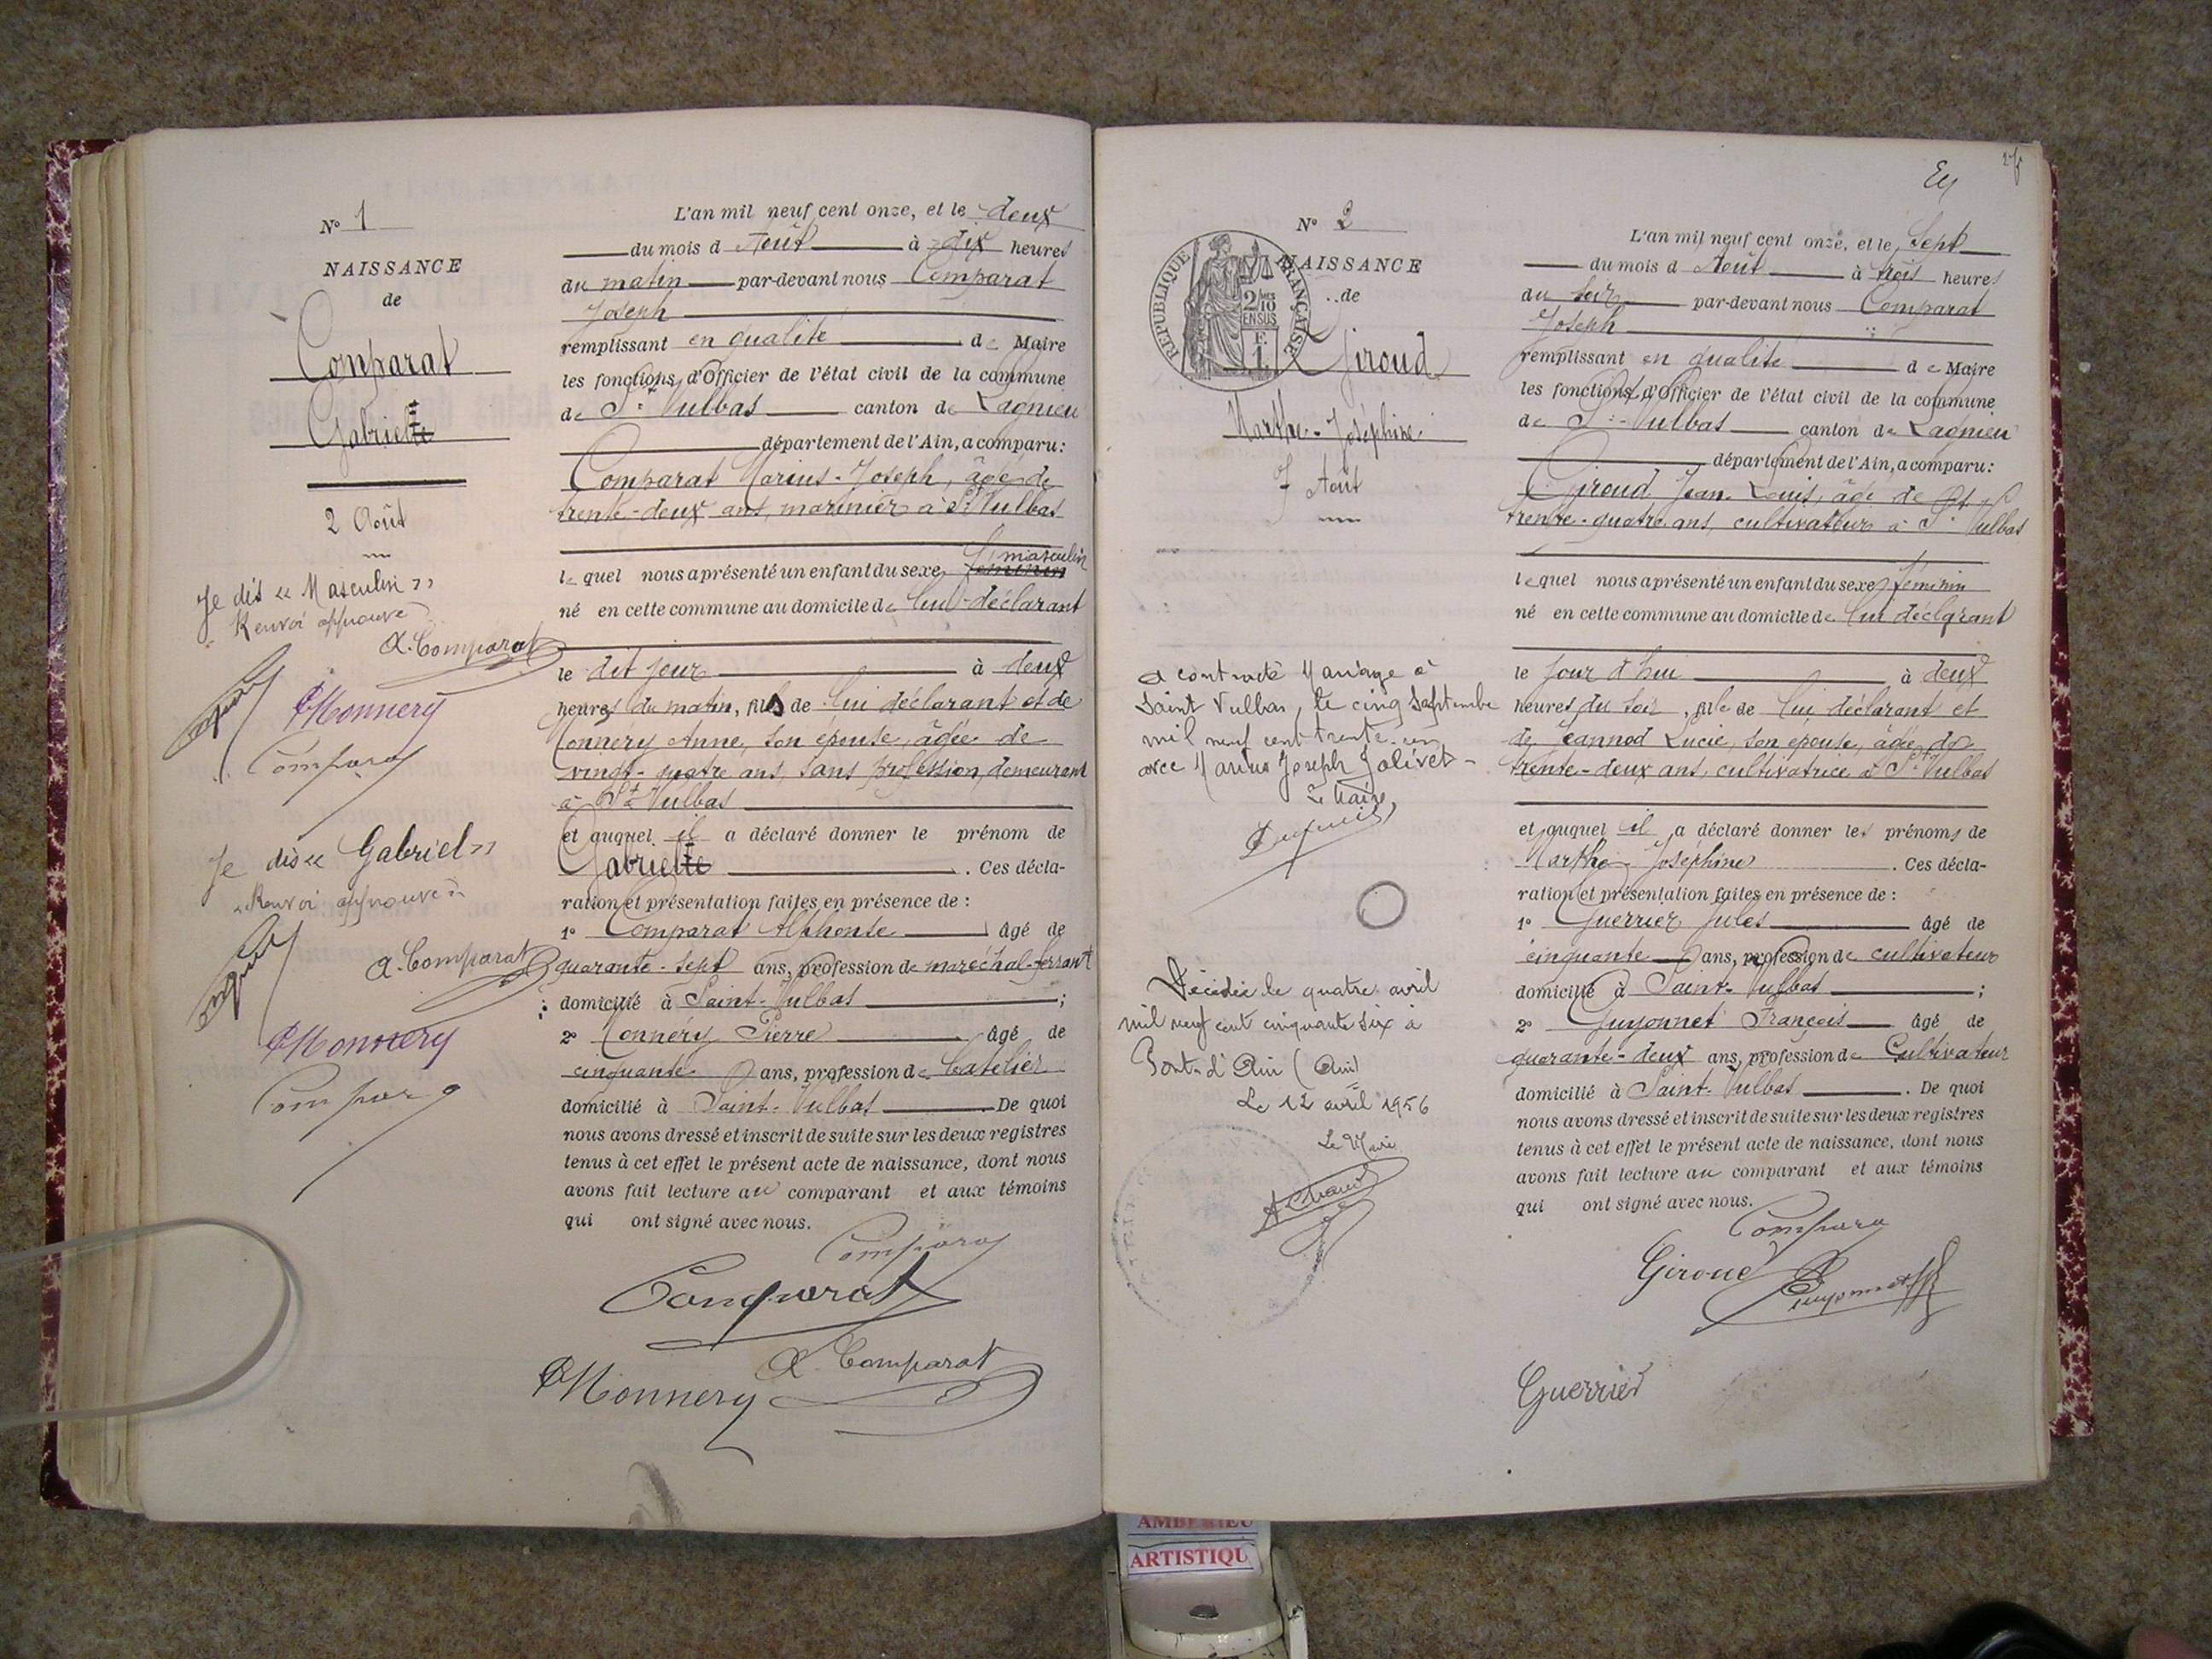 N° 1
NAISSANCE
de
Comparat
Gabrielle
2 Août
Je dis « Masculin »
Renvoi approuvé
A. Comparat
PMonnery
Comparat
Je dis « Gabriel »
« Renvoi approuvé »
A. Comparat
PMonnery
Comparat
L'an mil neuf cent onze, et le deux
du mois d Août à dix heures
du matin par-devant nous Comparat
Joseph
remplissant en qualité de Maire
les fonctions d'Officier de l'état civil de la commune
de St Vulbas canton de Lagnieu
département de l'Ain, a comparu:
Comparat Marius-Joseph, âgé de
trente-deux ans, marinier à St Vulbas
masculin
le quel nous a présenté un enfant du sexe féminin
né en cette commune au domicile de lui déclarant
le dit jour à deux
heures du matin, fils de lui déclarant et de
Monnery Anne, son épouse, âgée de
vingt-quatre ans, sans profession, demeurant
à St Vulbas
et auquel il a déclaré donner le prénom de
Gabrielle. Ces décla-
ration et présentation faites en présence de :
1° Comparat Alphonse âgé de
quarante-sept ans, profession de maréchal-ferrant
domicilié à Saint-Vulbas ;
2° Monnéry Pierre âgé de
cinquante ans, profession de batelier
domicilié à Saint-Vulbas De quoi
nous avons dressé et inscrit de suite sur les deux registres
tenus à cet effet le présent acte de naissance, dont nous
avons fait lecture au comparant et aux témoins
qui ont signé avec nous.
Comparat
Comparat
A. Comparat
PMonnery
N° 2
NAISSANCE
de
RÉPUBLIQUE FRANÇAISE
2/10 EN SUS
F. 1
Giroud
Marthe-Joséphine
7 Août
a contracté Mariage à
Saint Vulbas, le cinq Septembre
mil neuf cent trente-un
avec Marius Joseph Jolivet -
Le Maire,
Décédée le quatre avril
mil neuf cent cinquante six à
Pont-d'Ain (Ain)
Le 12 avril 1956
Le Maire
L'an mil neuf cent onze, et le Sept
du mois d Août à trois heures
du soir par-devant nous Comparat
Joseph
remplissant en qualité de Maire
les fonctions d'Officier de l'état civil de la commune
de St Vulbas canton de Lagnieu
département de l'Ain, a comparu:
Giroud Jean-Louis, âgé de
trente-quatre ans, cultivateur à St Vulbas
lequel nous a présenté un enfant du sexe féminin
né en cette commune au domicile de lui déclarant
le jour d'hui à deux
heures du soir, fille de lui déclarant et
de Jeannod Lucie, son épouse, âgée de
trente-deux ans, cultivatrice à St Vulbas
et auquel il a déclaré donner les prénoms de
Marthe-Joséphine. Ces décla-
ration et présentation faites en présence de :
1° Guerrier Jules âgé de
cinquante ans, profession de cultivateur
domicilié à Saint-Vulbas ;
2° Guyonnet François âgé de
quarante-deux ans, profession de Cultivateur
domicilié à Saint-Vulbas. De quoi
nous avons dressé et inscrit de suite sur les deux registres
tenus à cet effet le présent acte de naissance, dont nous
avons fait lecture au comparant et aux témoins
qui ont signé avec nous.
Comparat
Giroud
Guyonnet
Guerrier
AMBERIEU
ARTISTIQU